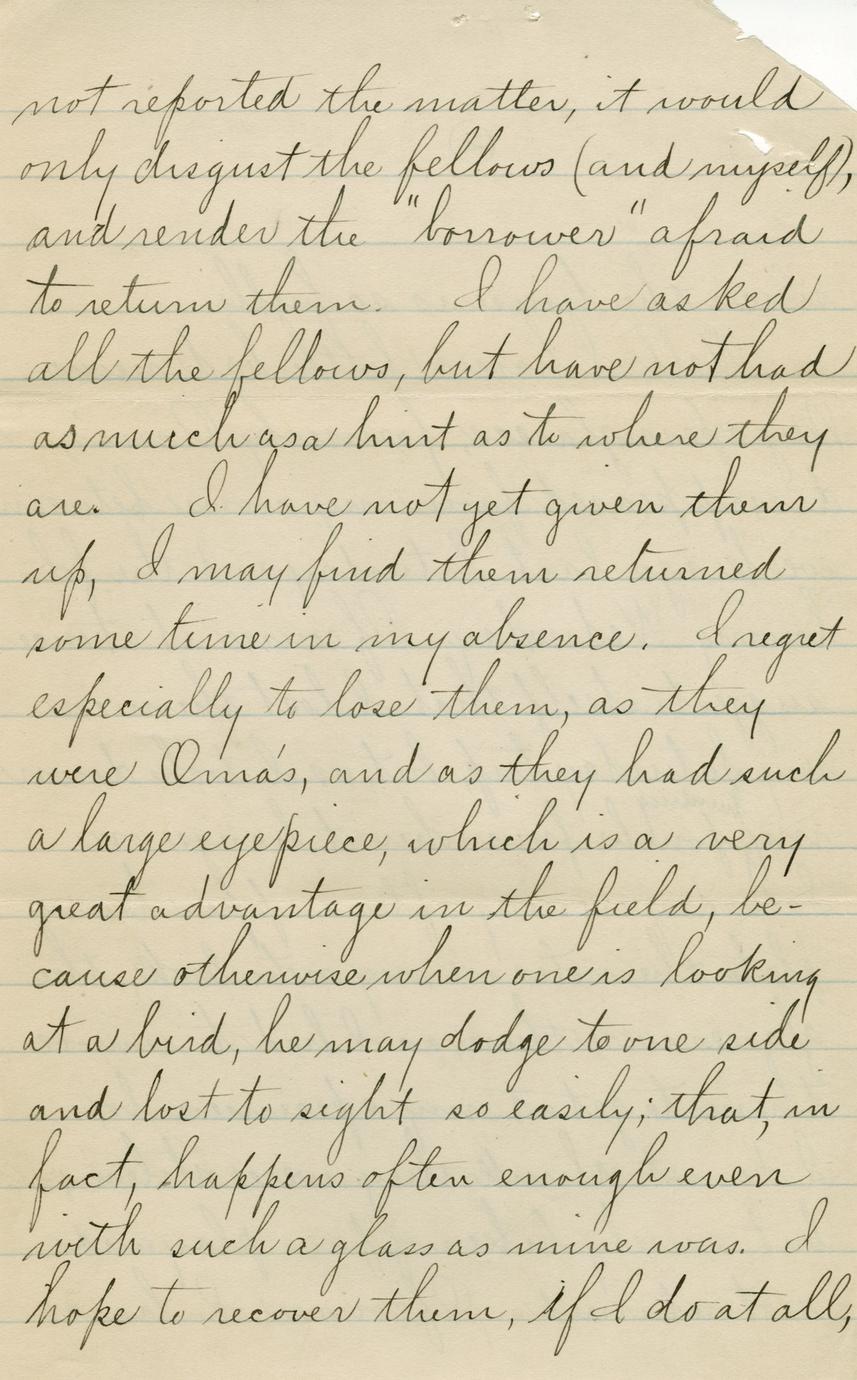 not reported the matter, it would
only disgust the fellows (and myself),
and render the "borrower" afraid
to return them. I have asked
all the fellows, but have not had
as much as a hint as to where they
are. I have not yet given them
up, I may find them returned
some time in my absence. I regret
especially to lose them, as they
were Oma's, and as they had such
a large eyepiece, which is a very
great advantage in the field, be-
cause otherwise when one is looking
at a bird, he may dodge to one side
and lost to sight so easily; that, in
fact, happens often enough even
with such a glass as mine was. I
hope to recover them, if I do at all,